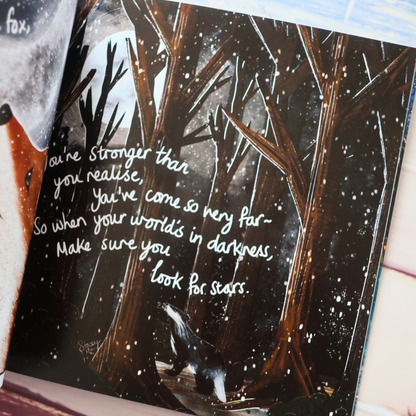 fox,
You're stronger than
you realise,
You've come so very far~
So when your world's in darkness,
Make sure you
look for stars.